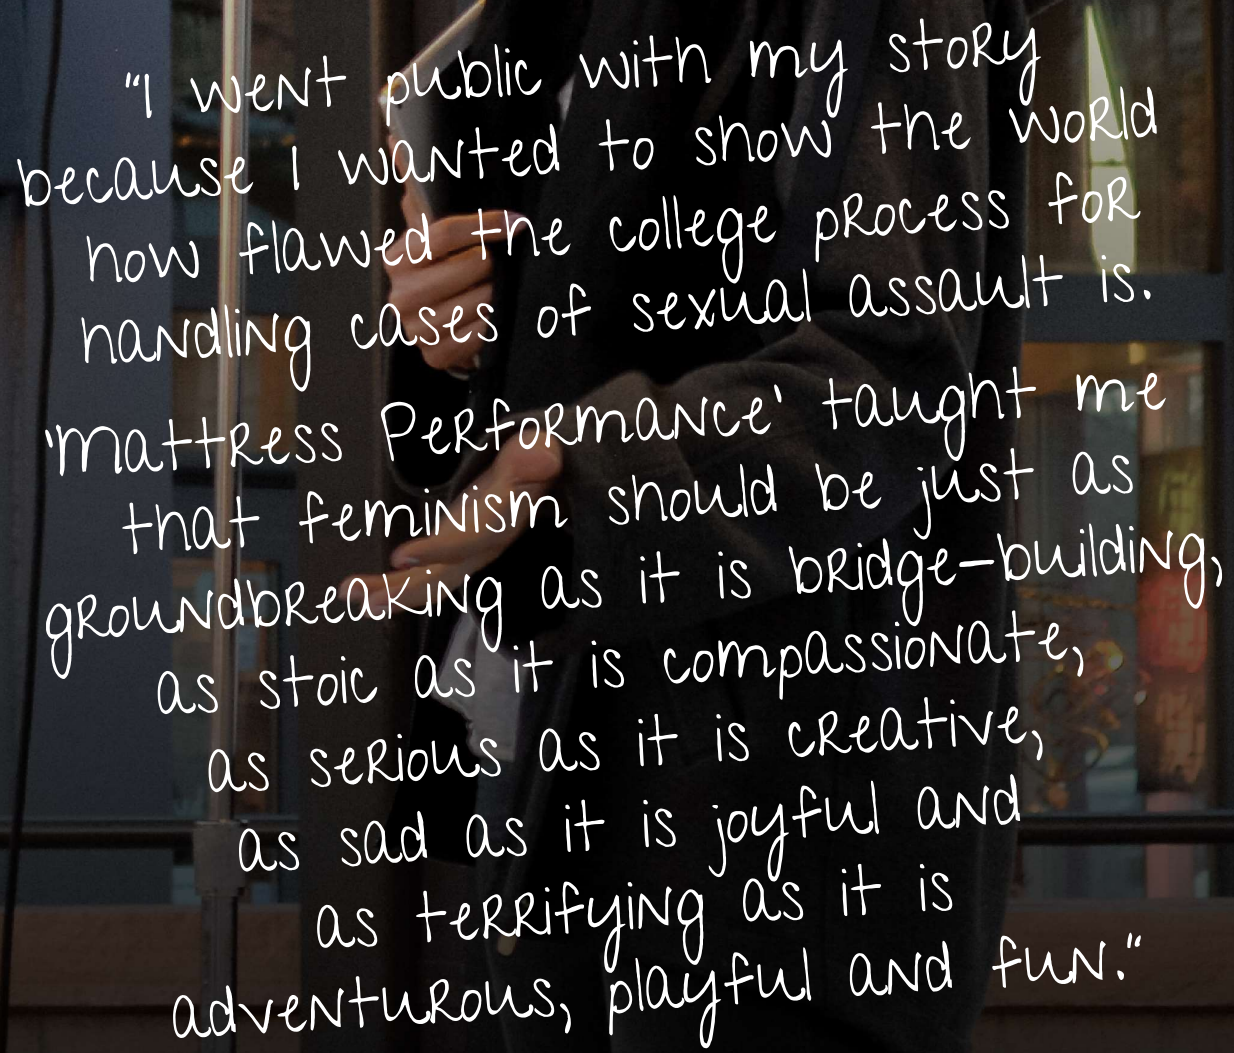 "I went public with my story
because I wanted to show the world
how flawed the college process for
handling cases of sexual assault is.
'Mattress Performance' taught me
that feminism should be just as
groundbreaking as it is bridge-building,
as stoic as it is compassionate,
as serious as it is creative,
as sad as it is joyful and
as terrifying as it is
adventurous, playful and fun."